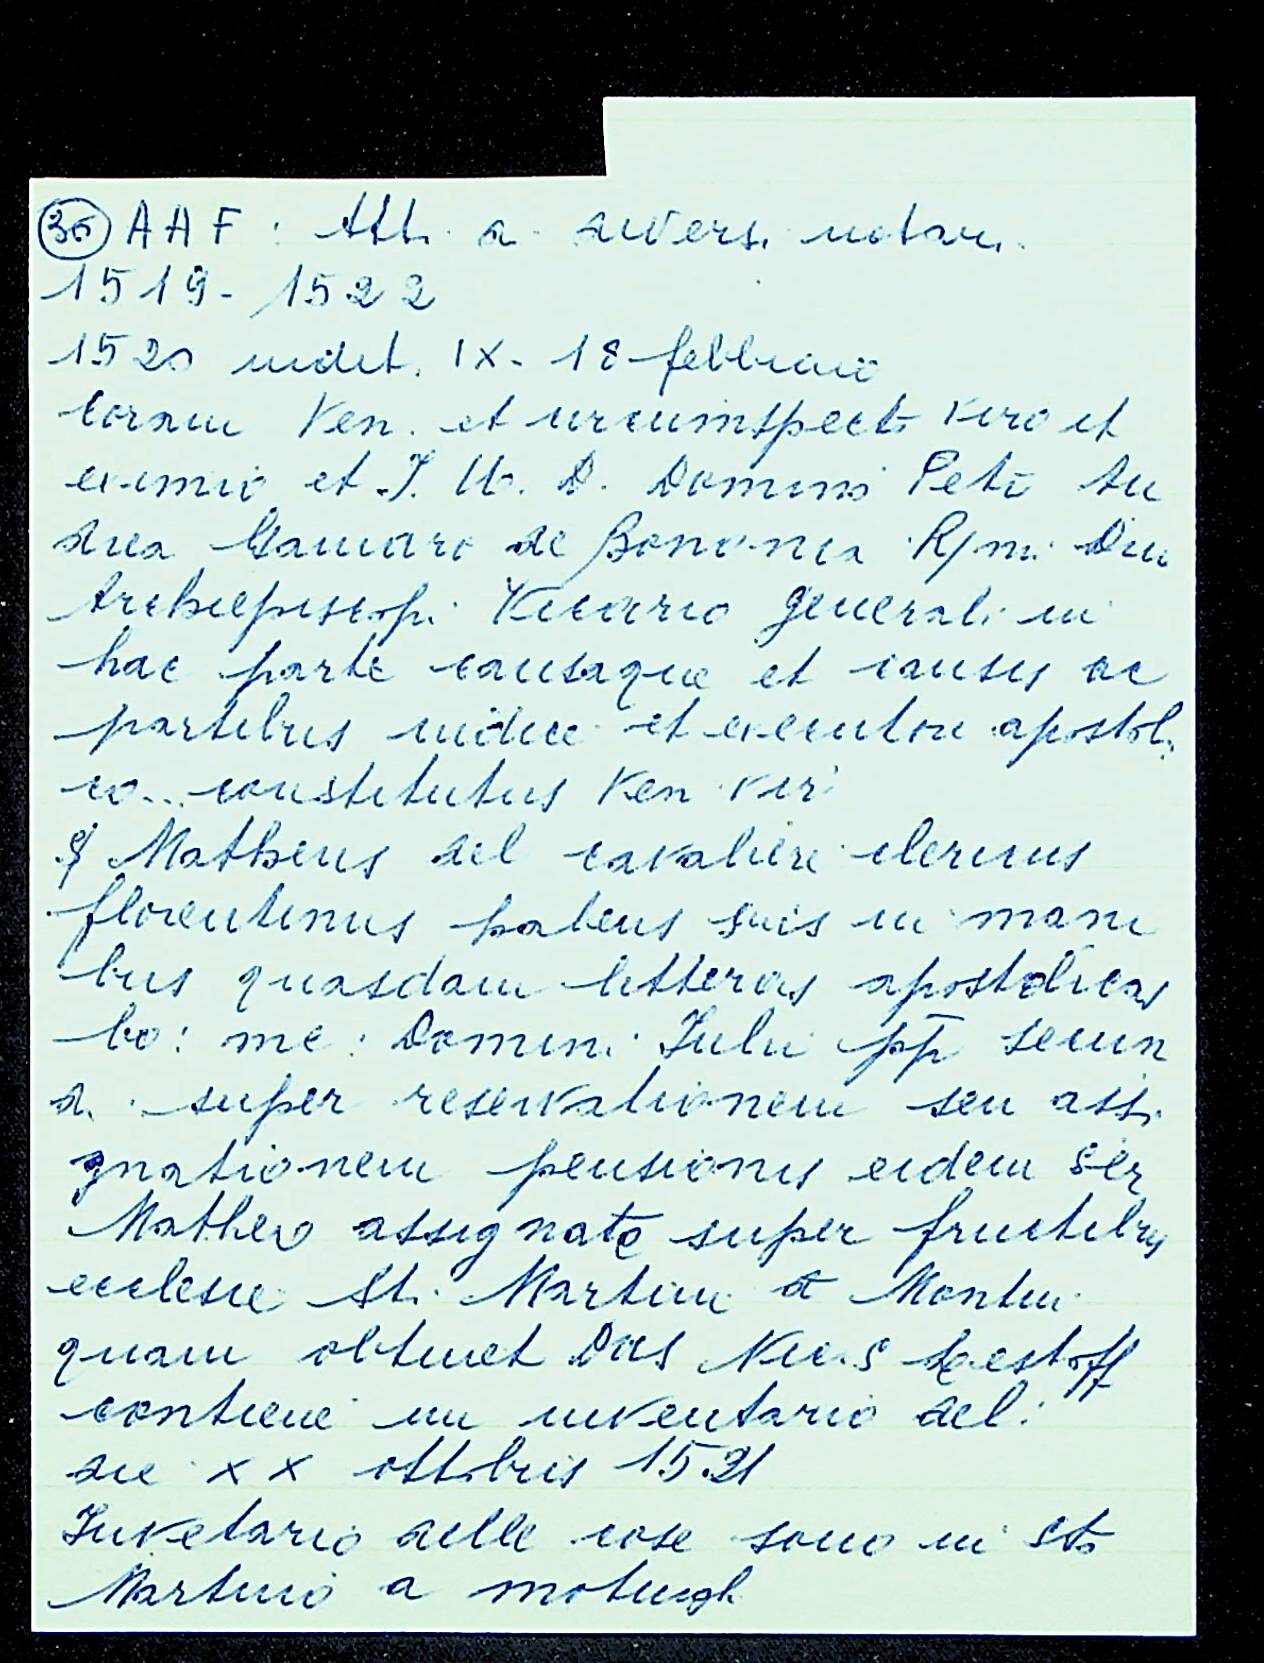 36 AAF: Atti di diversi notari
1519-1522
1520 indit. IX - 18 febbraio
Coram Ven. et circumspecto viro et
eximio et J. U. D. Domini Petri An
drea Gamaro de Bononia R/mi Dni
Archiepiscopi Vicario generali in
hac parte causaque et causis ac
partibus iudice et executore apostoli
co... constitutus Ven. vir
S/ Matheus del cavaliere clericus
florentinus habens suis in mani
bus quasdam litteras apostolicas
bo: me: Domini Iulii pp secun
di super reservationem seu assi
gnationem pensionis eidem ser
Matheo assignate super fructibus
ecclesie Sti. Martini a Montui
quam obtinet Dns
contiene un inventario del:
die XX ottobris 1521
Invetario delle cose sono in Sto
Martino a motughi